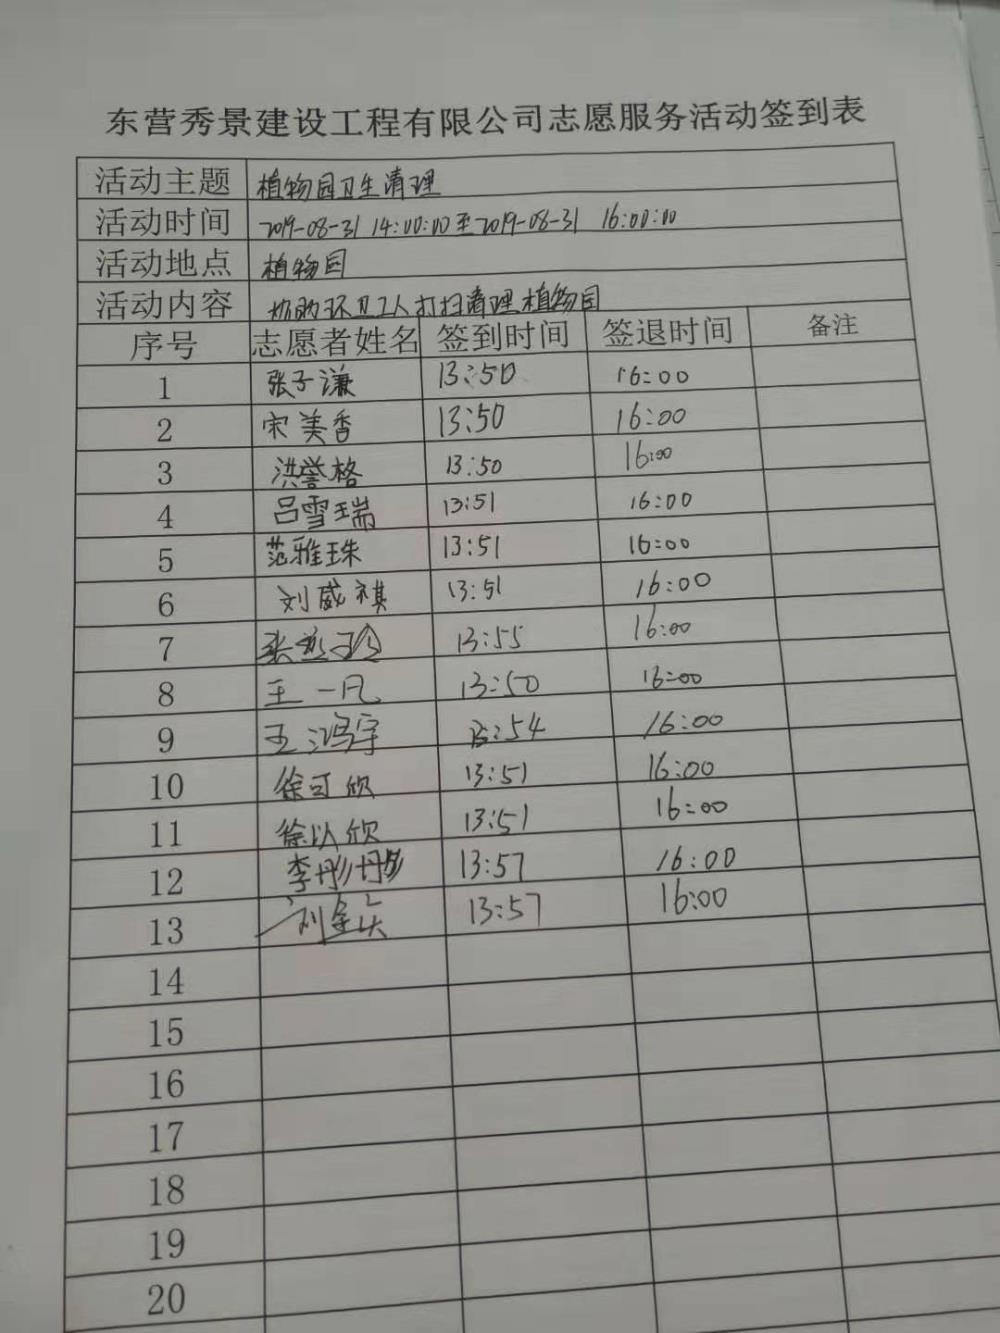 东营秀景建设工程有限公司志愿服务活动签到表
活动主题 植物园卫生清理
活动时间 2019-08-31 14:00:00至2019-08-31 16:00:00
活动地点 植物园
活动内容 协助环卫工人打扫清理植物园
序号 志愿者姓名 签到时间 签退时间 备注
1 张子谦 13:50 16:00
2 宋美香 13:50 16:00
3 洪誉格 13:50 16:00
4 吕雪瑞 13:51 16:00
5 范雅珠 13:51 16:00
6 刘威祺 13:51 16:00
7 张 13:55 16:00
8 王一凡 13:50 16:00
9 王鸿宇 13:54 16:00
10 徐可欣 13:51 16:00
11 徐以欣 13:51 16:00
12 李彤彤 13:57 16:00
13 刘 13:57 16:00
14
15
16
17
18
19
20